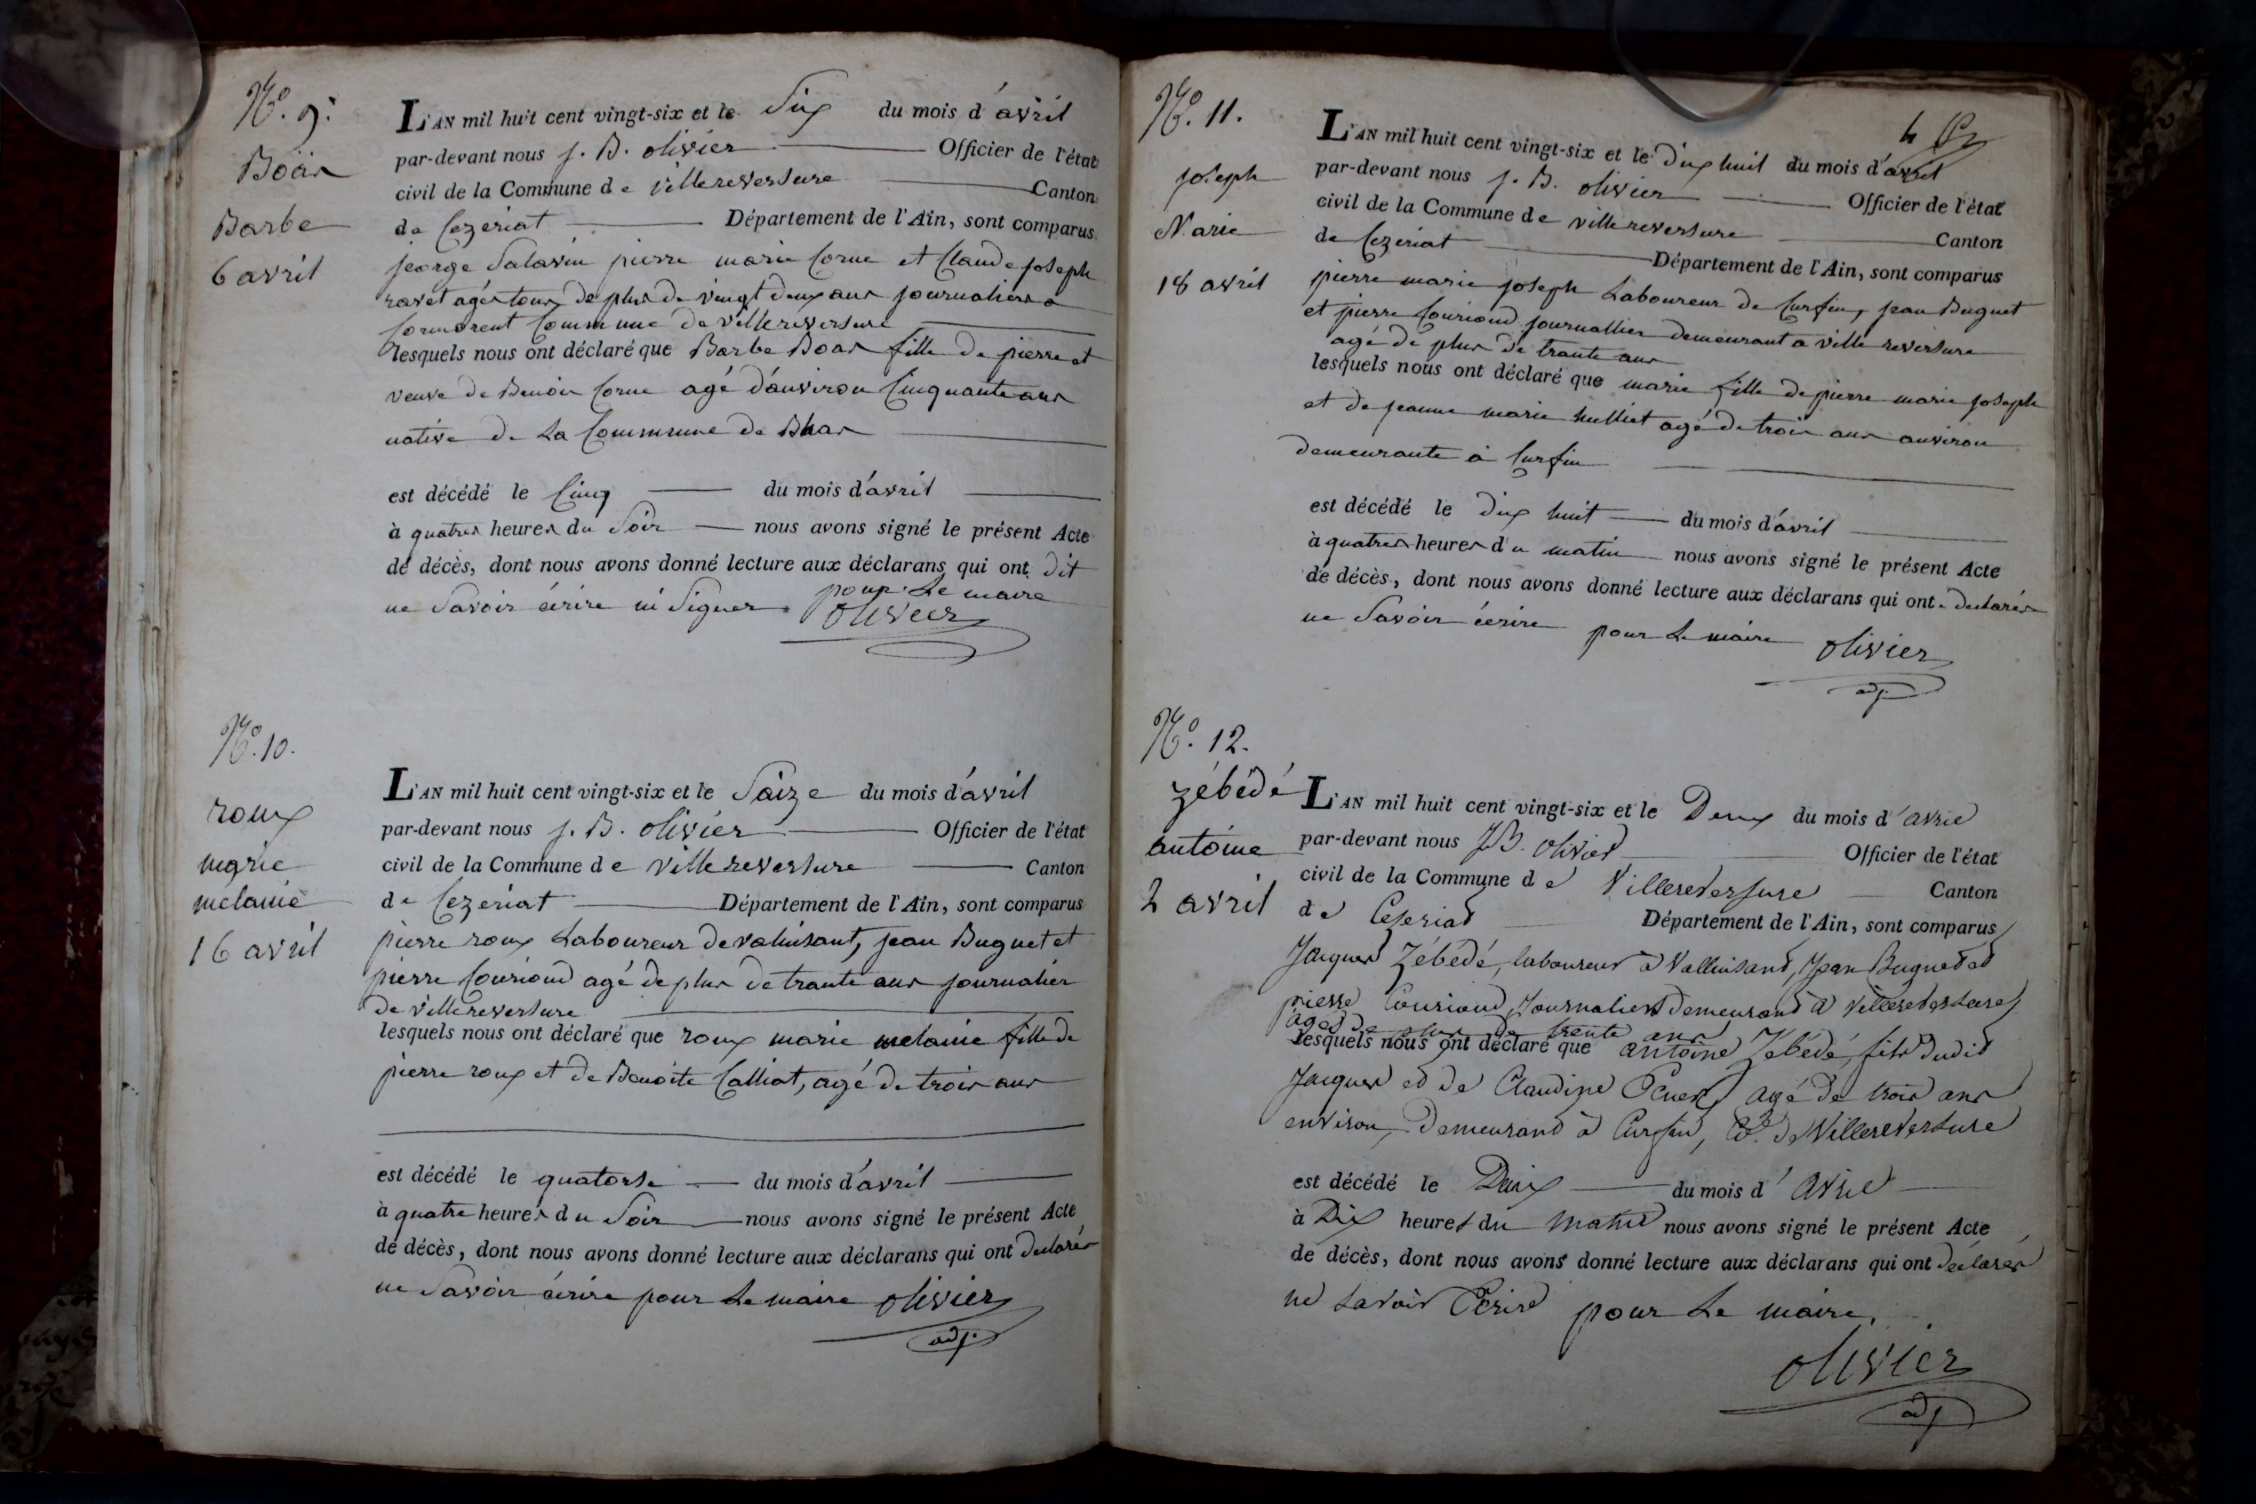 N.o 9.
Boär
Barbe
6 avril
L'AN mil huit cent vingt-six et le Six du mois d'avril
par-devant nous j. B. olivier Officier de l'état
civil de la Commune de villereversure Canton
de Cezeriat Département de l'Ain, sont comparus
george Salavin pierre marie Corne et Claude joseph
ravet agés tous de plus de vingt deux ans journaliers a
Cormorent Commune de villereversure
lesquels nous ont déclaré que Barbe Boar fille de pierre et
veuve de Benoit Corne agé d'anviron Cinquante ans
native de La Commune de
est décédé le Cinq du mois d'avril
à quatres heures du Soir nous avons signé le présent Acte
de décès, dont nous avons donné lecture aux déclarans qui ont dit
ne Savoir écrire ni Signer. pour Le maire
olivier
N.o 10.
roux
marie
melanie
16 avril
L'AN mil huit cent vingt-six et le Saize du mois d'avril
par-devant nous j. B. olivier Officier de l'état
civil de la Commune de villereversure Canton
de Cezeriat Département de l'Ain, sont comparus
pierre roux Laboureur de valuisant, jean Buguet et
pierre Couriond agé de plus de trante ans journalier
de villereversure
lesquels nous ont déclaré que roux marie melanie fille de
pierre roux et de Benoite Calliat, agé de trois ans
est décédé le quatorse du mois d'avril
à quatre heures du Soir nous avons signé le présent Acte
de décès, dont nous avons donné lecture aux déclarans qui ont declarér
ne Savoir écrire pour Le maire olivier
adj.
4
N.o 11.
joseph
Marie
18 avril
L'AN mil huit cent vingt-six et le dix huit du mois d'avril
par-devant nous j. B. olivier Officier de l'état
civil de la Commune de villereversure Canton
de Cezeriat Département de l'Ain, sont comparus
pierre marie joseph Laboureur de Curfin, jean Buguet
et pierre Couriond journallier demeurant a villereversure
agé de plus de trante ans
lesquels nous ont déclaré que marie fille de pierre marie joseph
et de jeanne marie hulliet agé de trois ans anviron
demeurante à Curfin
est décédé le dix huit du mois d'avril
à quatres heures du matin nous avons signé le présent Acte
de décès, dont nous avons donné lecture aux déclarans qui ont declarér
ne Savoir écrire pour Le maire olivier
adj.
N.o 12.
zébédé
antoine
2 avril
L'AN mil huit cent vingt-six et le Deux du mois d'avril
par-devant nous J.B. olivier Officier de l'état
civil de la Commune de Villereversure Canton
de Ceseriat Département de l'Ain, sont comparus
Jacques Zébédé, laboureur à Valluisant, Jean Buguet et
pierre Couriond, Journaliers demeurant à villereversure
agés de plus de trente ans
lesquels nous ont déclaré que antoine Zébédé, fils dudit
Jacques et de Claudine agé de trois ans
environ, Demeurant à Curfin, Co.ne de Villereversure
est décédé le Deux du mois d'Avril
à Dix heures du Matin nous avons signé le présent Acte
de décès, dont nous avons donné lecture aux déclarans qui ont déclarér
ne savoir Ecrire pour Le maire,
olivier
adj